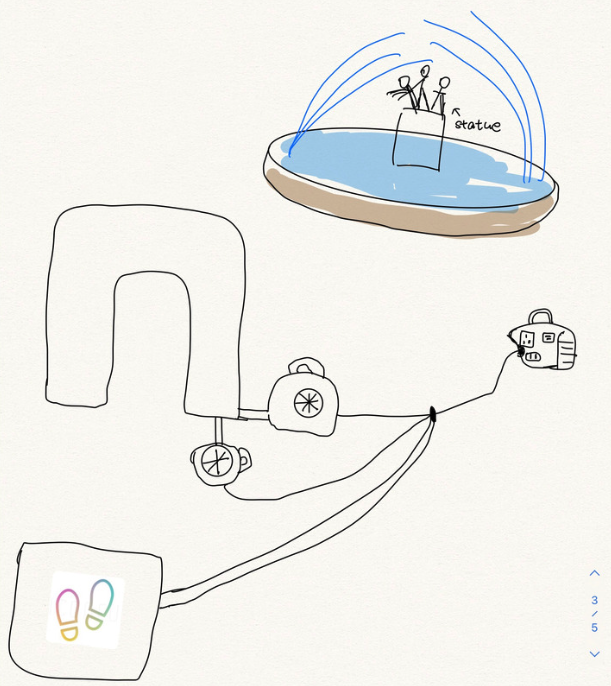 statue
3
/
5